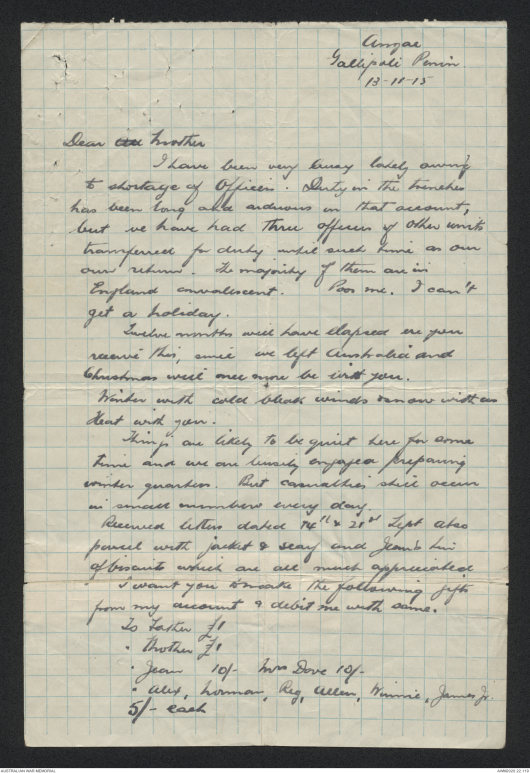 Anzac
Gallipoli Penin.
13-11-15
Dear Mother
I have been very busy lately owing
to shortage of Officers. Duty in the trenches
has been long and arduous on that account,
but we have had three officers of other units
transferred for duty until such time as our
own return. The majority of them are in
England convalescent. Poor me. I can't
get a holiday.
Twelve months will have elapsed ere you
receive this, since we left Australia and
Christmas will once more be with you.
Winter with cold bleak winds & snow with us
Heat with you.
Things are likely to be quiet here for some
time and we are busily engaged preparing
winter quarters. But casualties still occur
in small numbers every day.
Received letters dated 14th & 21st Sept also
parcel with jacket & scarf and Jean's tin
of biscuits which are all much appreciated
I want you to make the following gifts
from my account & debit me with same.
To Father £1
" Mother £1
" Jean 10/- Mrs Dove 10/-
" Alex, Norman, Reg, Allen, Winnie, James Jr.
5/- each
AUSTRALIAN WAR MEMORIAL